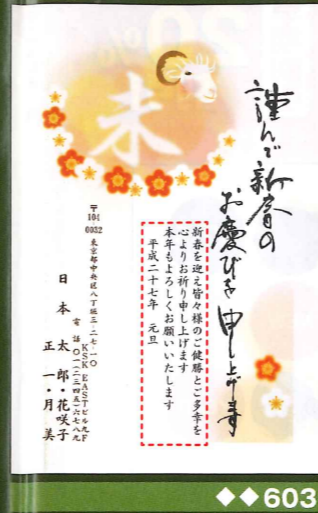 謹んで新春の
お慶びを申し上げます
未
新春を迎え皆々様のご健勝とご多幸を
心よりお祈り申し上げます
本年もよろしくお願いいたします
平成二十七年　元旦
〒104-0032
東京都中央区八丁堀三-二七-一〇
KSK EASTビル九F
電話　〇一（二三四五）六七八九
日本太郎・花咲子
正一・月美
◆◆603